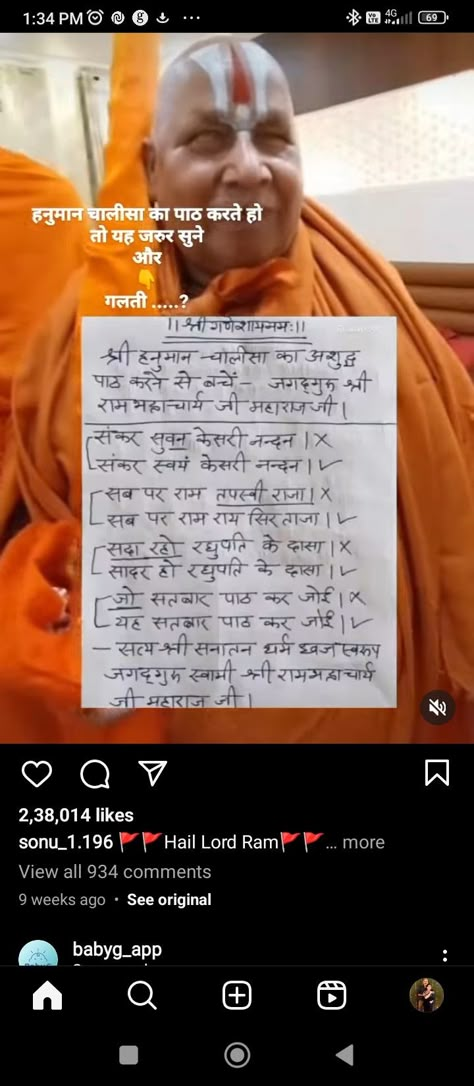 1:34 PM
4G
69
हनुमान चालीसा का पाठ करते हो
तो यह जरुर सुने
और
👇
गलती .....?
।। श्री गणेशाय नमः।।
श्री हनुमान -चालीसा का अशुद्ध
पाठ करने से बचें - जगद्गुरु श्री
रामभद्राचार्य जी महाराज जी।
संकर सुवन केसरी नन्दन। X
संकर स्वयं केसरी नन्दन। ✓
सब पर राम तपस्वी राजा। X
सब पर राम राय सिर ताजा। ✓
सदा रहो रघुपति के दासा। X
सादर हो रघुपति के दासा। ✓
जो सतबार पाठ कर जोई। X
यह सतबार पाठ कर जोई। ✓
- सत्य श्री सनातन धर्म ध्वज स्वरूप
जगद्गुरु स्वामी श्री रामभद्राचार्य
जी महाराज जी।
2,38,014 likes
sonu_1.196 🚩🚩Hail Lord Ram🚩🚩... more
View all 934 comments
9 weeks ago • See original
babyg_app